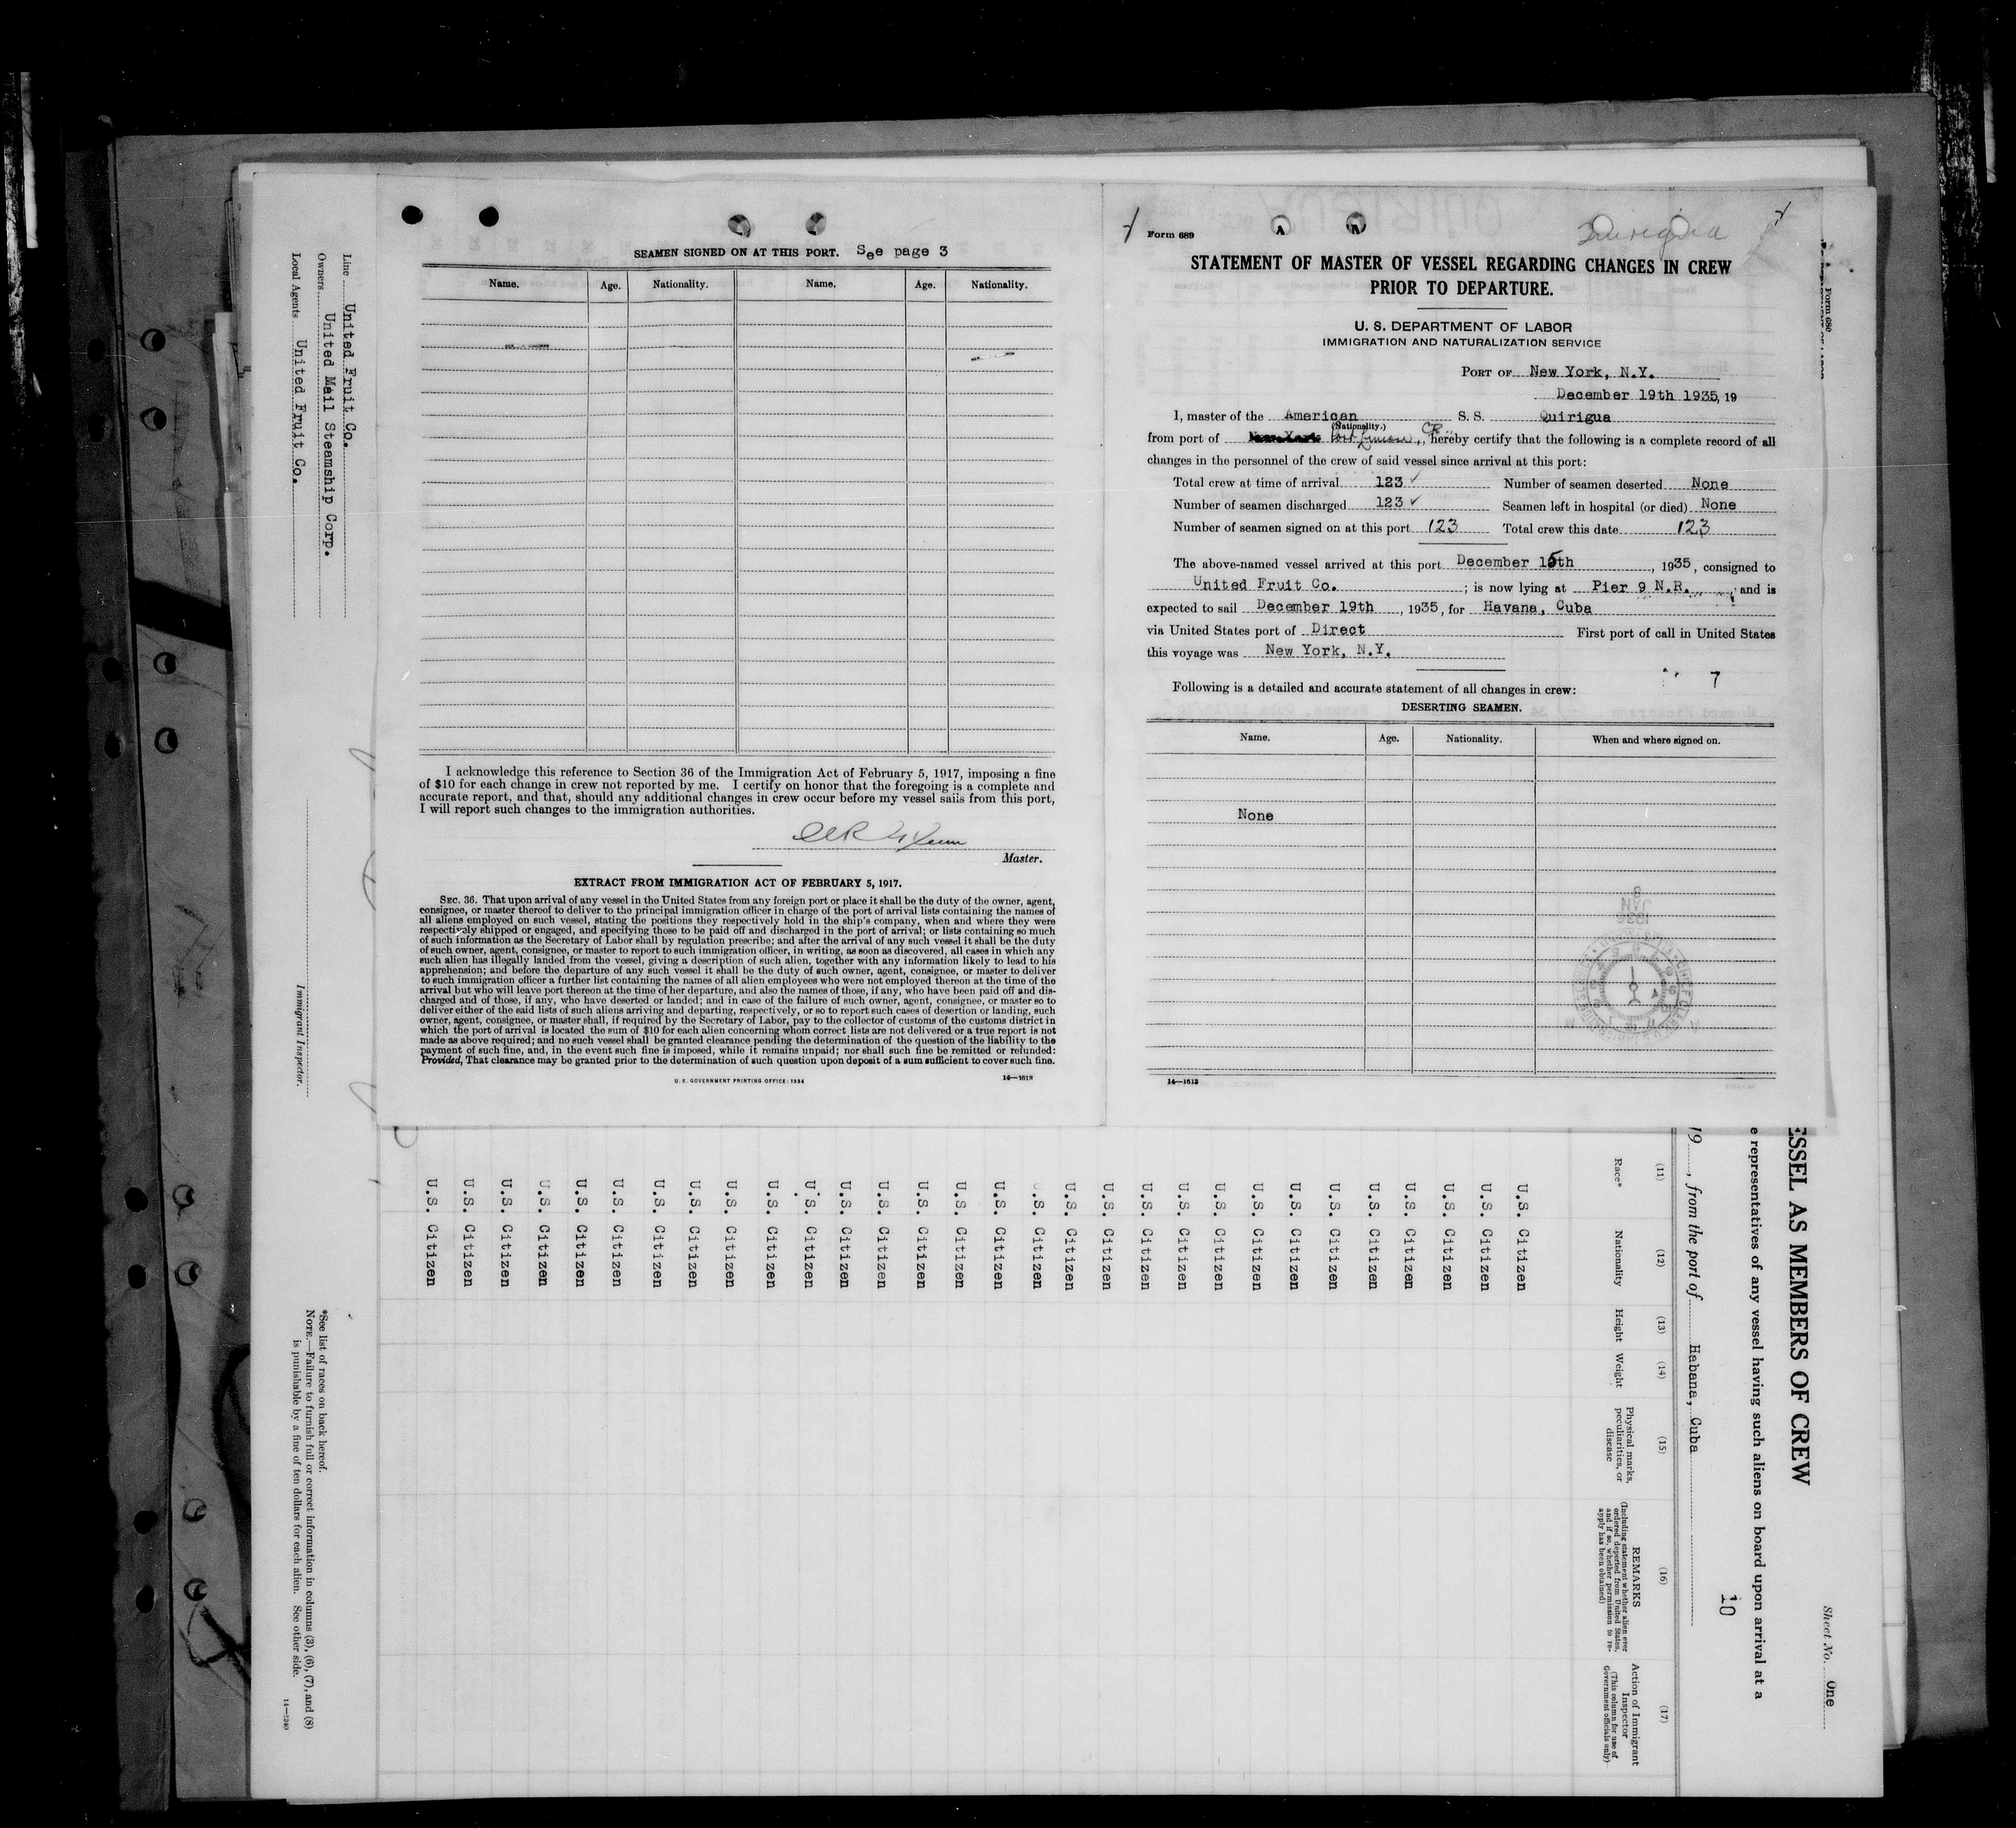 SEAMEN SIGNED ON AT THIS PORT. See page 3
Name. Age. Nationality. Name. Age. Nationality.
I acknowledge this reference to Section 36 of the Immigration Act of February 5, 1917, imposing a fine
of $10 for each change in crew not reported by me. I certify on honor that the foregoing is a complete and
accurate report, and that, should any additional changes in crew occur before my vessel sails from this port,
I will report such changes to the immigration authorities.
Master.
EXTRACT FROM IMMIGRATION ACT OF FEBRUARY 5, 1917.
SEC. 36. That upon arrival of any vessel in the United States from any foreign port or place it shall be the duty of the owner, agent,
consignee, or master thereof to deliver to the principal immigration officer in charge of the port of arrival lists containing the names of
all aliens employed on such vessel, stating the positions they respectively hold in the ship's company, when and where they were
respectively shipped or engaged, and specifying those to be paid off and discharged in the port of arrival; or lists containing so much
of such information as the Secretary of Labor shall by regulation prescribe; and after the arrival of any such vessel it shall be the duty
of such owner, agent, consignee, or master to report to such immigration officer, in writing, as soon as discovered, all cases in which any
such alien has illegally landed from the vessel, giving a description of such alien, together with any information likely to lead to his
apprehension; and before the departure of any such vessel it shall be the duty of such owner, agent, consignee, or master to deliver
to such immigration officer a further list containing the names of all alien employees who were not employed thereon at the time of the
arrival but who will leave port thereon at the time of her departure, and also the names of those, if any, who have been paid off and dis-
charged and of those, if any, who have deserted or landed; and in case of the failure of such owner, agent, consignee, or master so to
deliver either of the said lists of such aliens arriving and departing, respectively, or so to report such cases of desertion or landing, such
owner, agent, consignee, or master shall, if required by the Secretary of Labor, pay to the collector of customs of the customs district in
which the port of arrival is located the sum of $10 for each alien concerning whom correct lists are not delivered or a true report is not
made as above required; and no such vessel shall be granted clearance pending the determination of the question of the liability to the
payment of such fine, and, in the event such fine is imposed, while it remains unpaid; nor shall such fine be remitted or refunded:
Provided, That clearance may be granted prior to the determination of such question upon deposit of a sum sufficient to cover such fine.
U. S. GOVERNMENT PRINTING OFFICE: 1934 14—1613
Form 689
Quirigua
STATEMENT OF MASTER OF VESSEL REGARDING CHANGES IN CREW
PRIOR TO DEPARTURE.
U. S. DEPARTMENT OF LABOR
IMMIGRATION AND NATURALIZATION SERVICE
PORT OF New York, N.Y.
December 19th 1935, 19
I, master of the American S. S. Quirigua
(Nationality.)
from port of Port Limon, CR, hereby certify that the following is a complete record of all
changes in the personnel of the crew of said vessel since arrival at this port:
Total crew at time of arrival 123 ✓ Number of seamen deserted None
Number of seamen discharged 123 ✓ Seamen left in hospital (or died) None
Number of seamen signed on at this port 123 Total crew this date 123
The above-named vessel arrived at this port December 15th, 1935, consigned to
United Fruit Co.; is now lying at Pier 9 N.R., and is
expected to sail December 19th, 1935, for Havana, Cuba
via United States port of Direct First port of call in United States
this voyage was New York, N.Y.
7
Following is a detailed and accurate statement of all changes in crew:
DESERTING SEAMEN.
Name. Age. Nationality. When and where signed on.
None
1936
JAN
14—1613
Form 680
Line United Fruit Co.
Owners United Mail Steamship Corp.
Local Agents United Fruit Co.
Immigrant Inspector.
*See list of races on back hereof.
NOTE.—Failure to furnish full or correct information in columns (3), (6), (7), and (8)
is punishable by a fine of ten dollars for each alien. See other side.
14—1240
Sheet No. One
ESSEL AS MEMBERS OF CREW
e representatives of any vessel having such aliens on board upon arrival at a
10
19, from the port of Habana, Cuba
(11) (12) (13) (14) (15) (16) (17)
Race* Nationality Height Weight
Physical marks, peculiarities, or disease
REMARKS
(Including statement whether alien ever ordered deported from United States, and if so, whether permission to re-apply has been obtained)
Action of Immigrant Inspector
(This column for use of Government officials only)
U.S. Citizen
U.S. Citizen
U.S. Citizen
U.S. Citizen
U.S. Citizen
U.S. Citizen
U.S. Citizen
U.S. Citizen
U.S. Citizen
U.S. Citizen
U.S. Citizen
U.S. Citizen
U.S. Citizen
U.S. Citizen
U.S. Citizen
U.S. Citizen
U.S. Citizen
U.S. Citizen
U.S. Citizen
U.S. Citizen
U.S. Citizen
U.S. Citizen
U.S. Citizen
U.S. Citizen
U.S. Citizen
U.S. Citizen
U.S. Citizen
U.S. Citizen
U.S. Citizen
U.S. Citizen